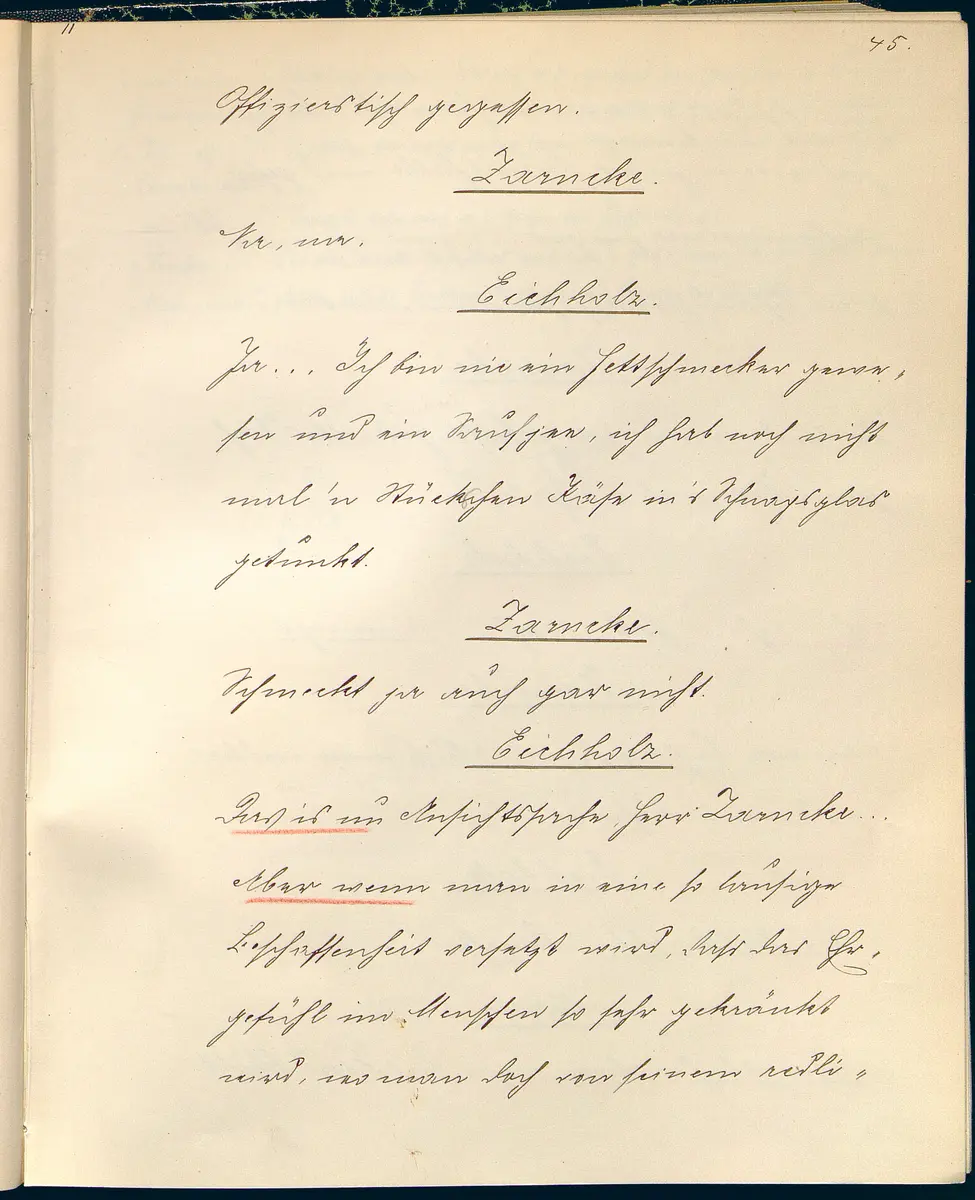 45.
Offizierstisch gegessen.
Zarncke.
Na, na.
Eichholz.
Ja... Ich bin nie ein Fettschmecker gewe-
sen und ein Saufjan, ich hab noch nicht
mal 'n Stückchen Käse in's Schnapsglas
getunkt.
Zarncke.
Schmeckt ja auch gar nicht.
Eichholz.
Das is nu Ansichtssache, Herr Zarncke...
Aber wenn man in eine so lausige
Beschaffenheit versetzt wird, dass das Ehr-
gefühl im Menschen so sehr gekränkt
wird, wo man doch von seinem redli-